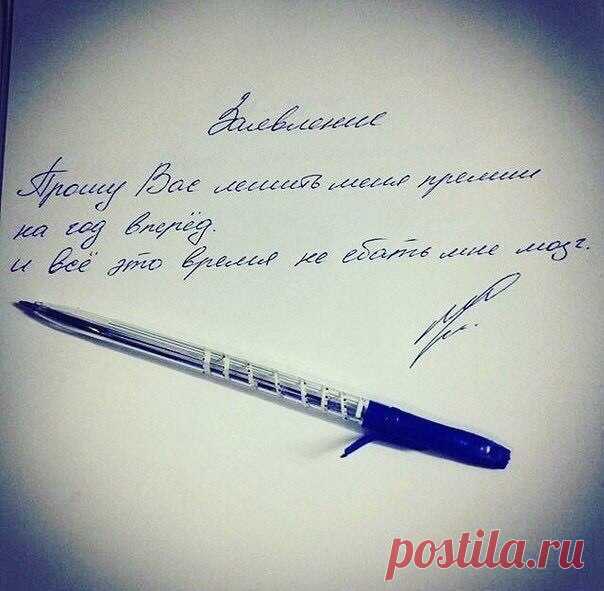 Заявление
Прошу Вас лешить меня премии
на год вперёд.
и всё это время не ебать мне мозг.
postila.ru